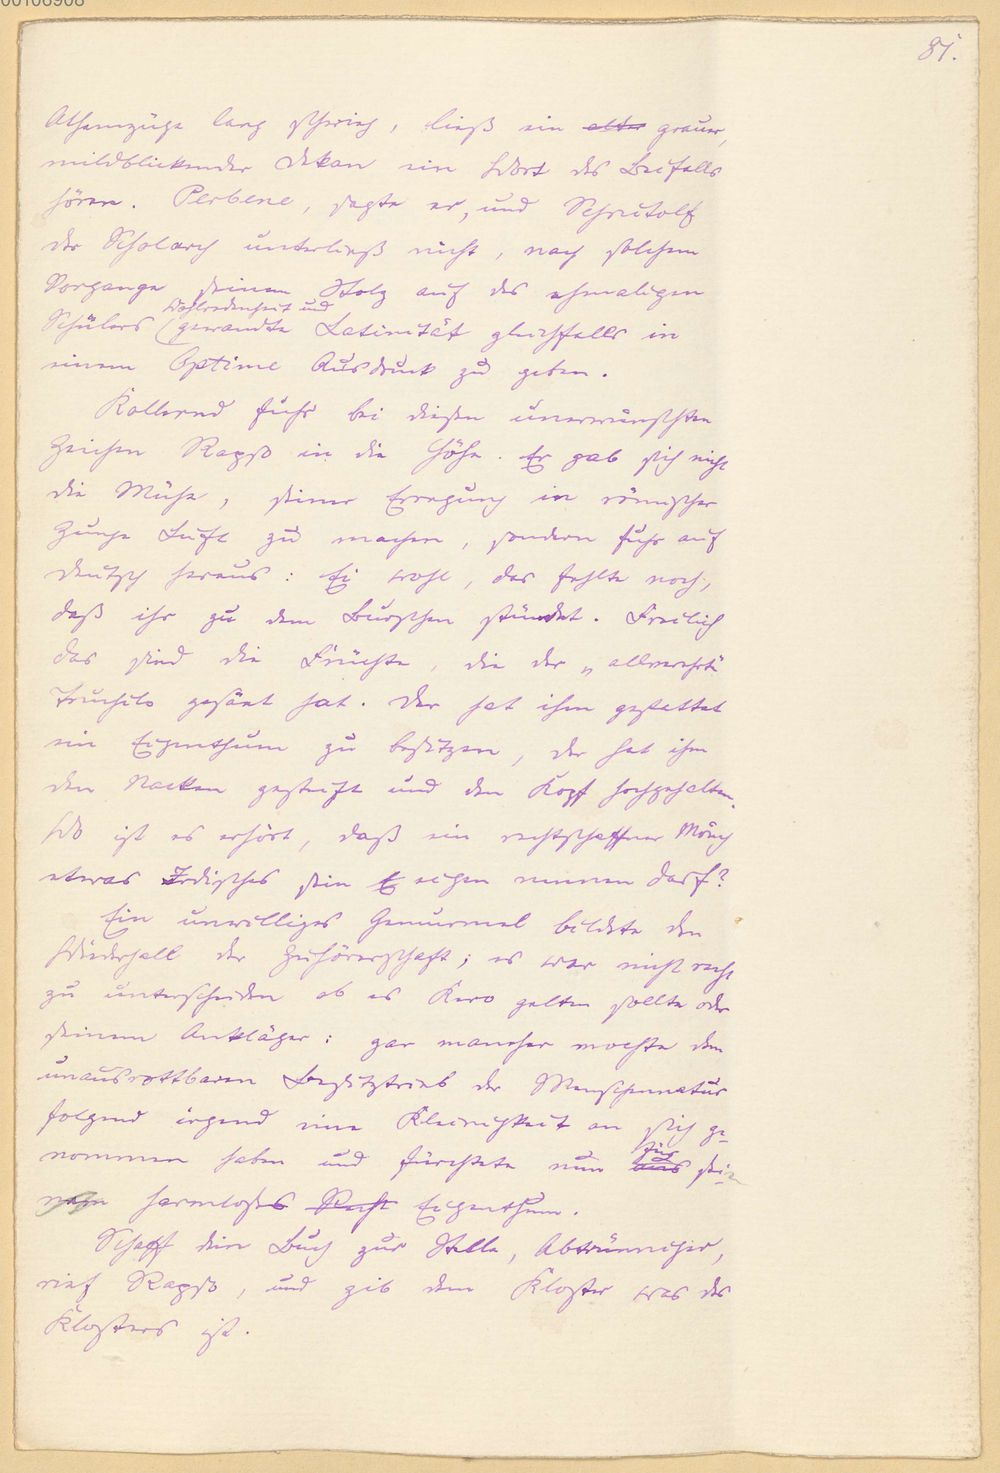 00106908
81.
Athemzüge lang schwieg, ließ ein alter grauer,
mildblickender Dekan ein Wort des Beifalls
hören. Perbene, sagte er, und Schrutolf
der Scholarch unterließ nicht, nach solchem
Vorgange seinem Stolz auf des ehmaligen
Wohlredenheit und
Schülers gewandte Latinität gleichfalls in
einem Optime Ausdruck zu geben.
Kollernd fuhr bei diesen unerwünschten
Zeichen Rapso in die Höhe. Er gab sich nicht
die Mühe, seiner Erregung in römischer
Zunge Luft zu machen, sondern fuhr auf
deutsch heraus: Ei wohl, das fehlte noch,
daß ihr zu dem Burschen stündet. Freilich
das sind die Früchte, die der „allverehrte
gesäet hat. Der hat ihm gestattet
ein Eigenthum zu besitzen, der hat ihm
den Nacken gesteift und den Kopf hochgehalten.
Wo ist es erhört, daß ein rechtschaffner Mönch
etwas Irdisches sein E eigen nennen darf?
Ein unwilliges Gemurmel bildete den
Wiederhall der Zuhörerschaft; es war nicht recht
zu unterscheiden ob es Kero gelten sollte oder
seinem Ankläger: gar mancher mochte dem
unausrottbaren Besitztrieb der Menschennatur
folgend irgend eine Kleinigkeit an sich ge-
für
nommen haben und fürchtete nun aus sei-
nem harmloses Recht Eigenthum.
Schaff dein Buch zur Stelle, Abtrünniger,
rief Rapso, und gib dem Kloster was des
Klosters ist.